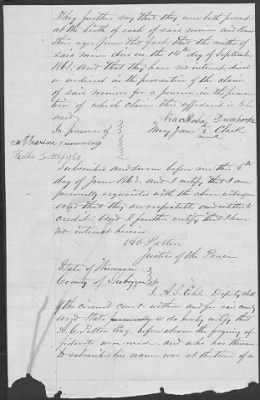 They further say that they were both present
at the birth of each of said minors and know
their ages from this fact. That the mother of
said minors died on the 14th day of September
1861. And that they have no interest direct
or indirect in the prosecution of the claim
of said minors for a pension in the prosecu-
tion of which claim this affidavit is
used
In presence of
Mary Jane Clark
mark
Catharine
Subscribed and sworn before me this 6th
day of June 1863. And I certify that I am
personally acquainted with the above
and that they are respectable and entitled to
credit: And I further certify that I have
no interest herein.
Justice of the Peace
State of Wisconsin
County of Sheboygan
Deputy clerk
of the circuit court within and for said county
and State do hereby certify that
Esq. before whom the foregoing af-
fidavits were made, and who has thereun-
to subscribed his name was at the time of so